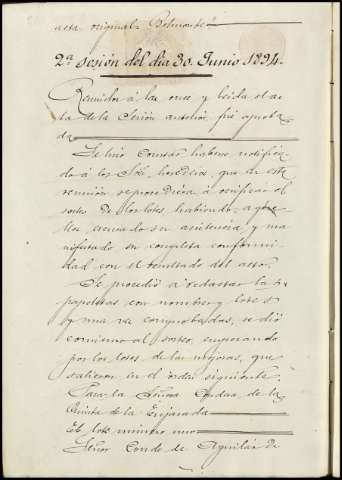 acta original= Belmonte=
2ª sesión del dia 30 Junio 1894.
Reunidos á las once y leida el ac-
ta de la Sesión anterior fué aproba-
da
Se hizo constar haberse notifica-
do á los Sres. herederos, que en esta
reunión se procedería á verificar el
sorteo de los lotes, habiendo aque-
llos, excusado su asistencia y ma-
nifestado su completa conformi-
dad con el resultado del acto.
Se procedió á redactar las
papeletas con nombres y lotes
y una vez comprobadas, se dió
comienzo al sorteo, empezando
por los lotes de las mejoras, que
salieron en el orden siguiente.
Para la Señora Condesa de la
Quinta de la Enjarada
el lote número uno
Señor Conde de Aguilar de